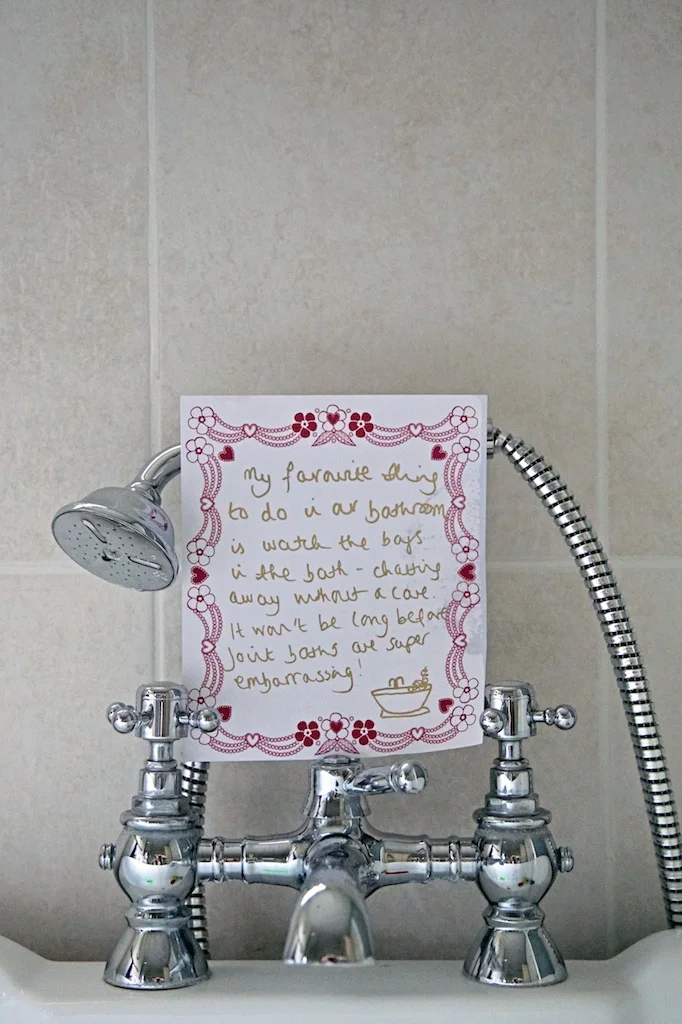 My favourite thing
to do in our bathroom
is watch the boys
in the bath - chatting
away without a care.
It won't be long before
joint baths are super
embarrassing!